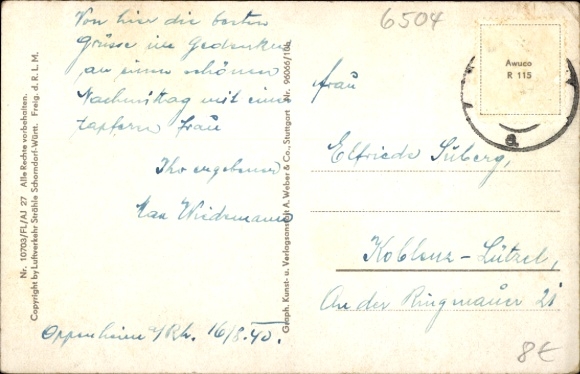 Von hier die besten
Grüsse im Gedenken
an einen schönen
Nachmittag mit einer
tapfern Frau
Ihr ergebener
Max Wiedemann
Oppenheim a/Rh. 16/8.40.
Nr. 10703/FL/AJ 27 Alle Rechte vorbehalten.
Copyright by Luftverkehr Strähle Schorndorf-Württ. Freig. d. R. L. M.
Graph. Kunst- u. Verlagsanstalt A. Weber & Co., Stuttgart Nr. 96066/10b
6504
Awuco
R 115
a
Frau
Elfriede Süberg,
Koblenz-Lützel,
An der Ringmauer 21
8€